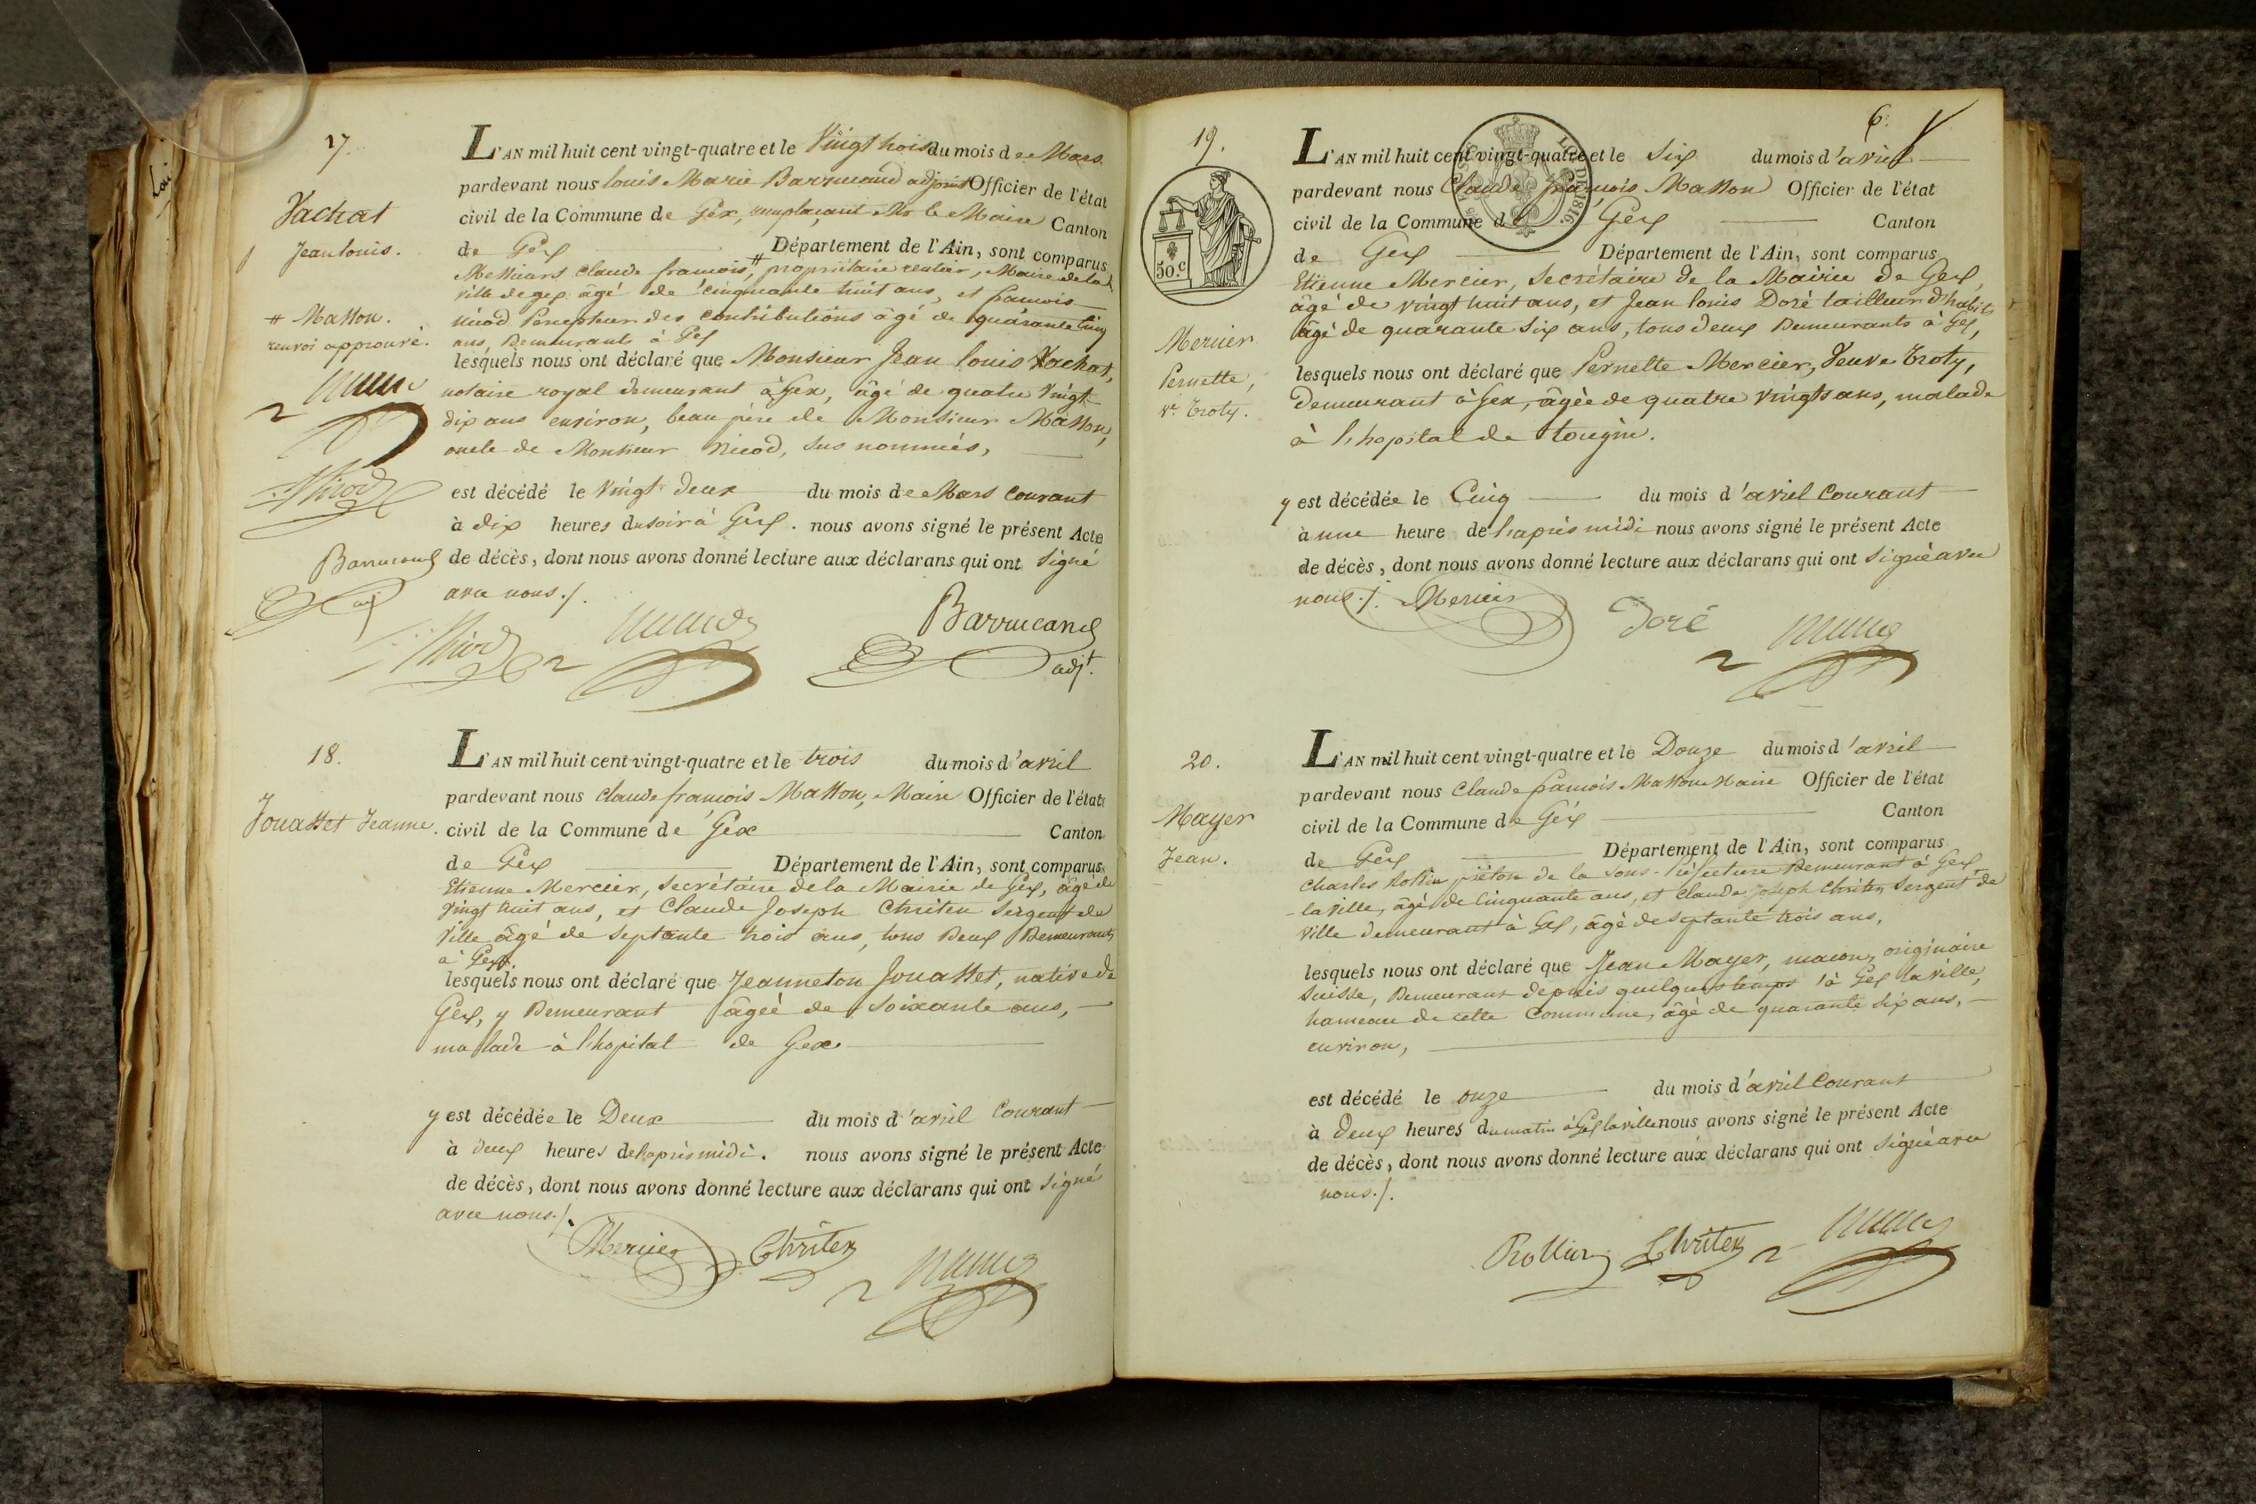 17.
Vachat
Jean louis.
# Masson.
renvoi approuvé.
Nicod
Barrucand
adj
L'AN mil huit cent vingt-quatre et le Vingt trois du mois de Mars
pardevant nous louis Marie Barrucand adjoint Officier de l'état
civil de la Commune de Gex, remplaçant Mr le Maire Canton
de Gex Département de l'Ain, sont comparus
Messieurs Claude françois, # propriétaire rentier, Maire de la
Ville de gex âgé de cinquante huit ans, et françois
Nicod Percepteur des contributions âgé de quarante cinq
ans, Demeurants à Gex
lesquels nous ont déclaré que Monsieur Jean louis Vachat,
notaire royal demeurant à Gex, âgé de quatre Vingt
dix ans environ, beau père de Monsieur Masson,
oncle de Monsieur Nicod, sus nommés,
est décédé le Vingt deux du mois de Mars courant
à dix heures du soir à Gex. nous avons signé le présent Acte
de décès, dont nous avons donné lecture aux déclarans qui ont signé
avec nous./.
Nicod
Barrucand
adjt.
18.
Jouasset Jeanne.
L'AN mil huit cent vingt-quatre et le trois du mois d'avril
pardevant nous Claude françois Masson, Maire Officier de l'état
civil de la Commune de Gex Canton
de Gex Département de l'Ain, sont comparus
Etienne Mercier, Secrétaire de la Mairie de Gex, âgé de
Vingt huit ans, et Claude Joseph Chriten Sergent de
Ville âgé de septante trois ans, tous Deux Demeurants
à Gex.
lesquels nous ont déclaré que Jeanneton Jouasset, native de
Gex, y Demeurant âgée de Soixante ans,
malade à l'hopital de Gex
y est décédée le Deux du mois d'avril Courant
à deux heures de l'aprés midi. nous avons signé le présent Acte
de décès, dont nous avons donné lecture aux déclarans qui ont signé
avec nous./.
Mercier Chriten
6.
19.
50.c
LOI DE 1816.
Mercier
Pernette,
Ve Troty.
L'AN mil huit cent vingt-quatre et le Six du mois d'avril
pardevant nous Claude françois Masson Officier de l'état
civil de la Commune de Gex Canton
de Gex Département de l'Ain, sont comparus
Etienne Mercier, Secrétaire de la Mairie de Gex,
âgé de vingt huit ans, et Jean louis Doré tailleur d'habits
âgé de quarante six ans, tous deux Demeurants à Gex,
lesquels nous ont déclaré que Pernette Mercier, Veuve Troty,
Demeurant à Gex, âgée de quatre Vingts ans, malade
à l'hopital de tougin.
y est décédée le Cinq du mois d'avril Courant
à une heure de l'aprés midi nous avons signé le présent Acte
de décès, dont nous avons donné lecture aux déclarans qui ont signé avec
nous./. Mercier
Doré
20.
Mayer
Jean.
L'AN mil huit cent vingt-quatre et le Douze du mois d'avril
pardevant nous Claude françois Masson Maire Officier de l'état
civil de la Commune de Gex Canton
de Gex Département de l'Ain, sont comparus
Charles Rollin piéton de la Sous-Préfecture Demeurant à Gex
la Ville, âgé de Cinquante ans, et Claude Joseph Chriten Sergent de
Ville demeurant à Gex, âgé de septante trois ans,
lesquels nous ont déclaré que Jean Mayer, maçon, originaire
Suisse, Demeurant depuis quelques temps à Gex la Ville,
hameau de cette Commune, âgé de quarante six ans,
environ,
est décédé le onze du mois d'avril Courant
à Deux heures du matin à Gex la ville nous avons signé le présent Acte
de décès, dont nous avons donné lecture aux déclarans qui ont signé avec
nous./.
Rollin Chriten